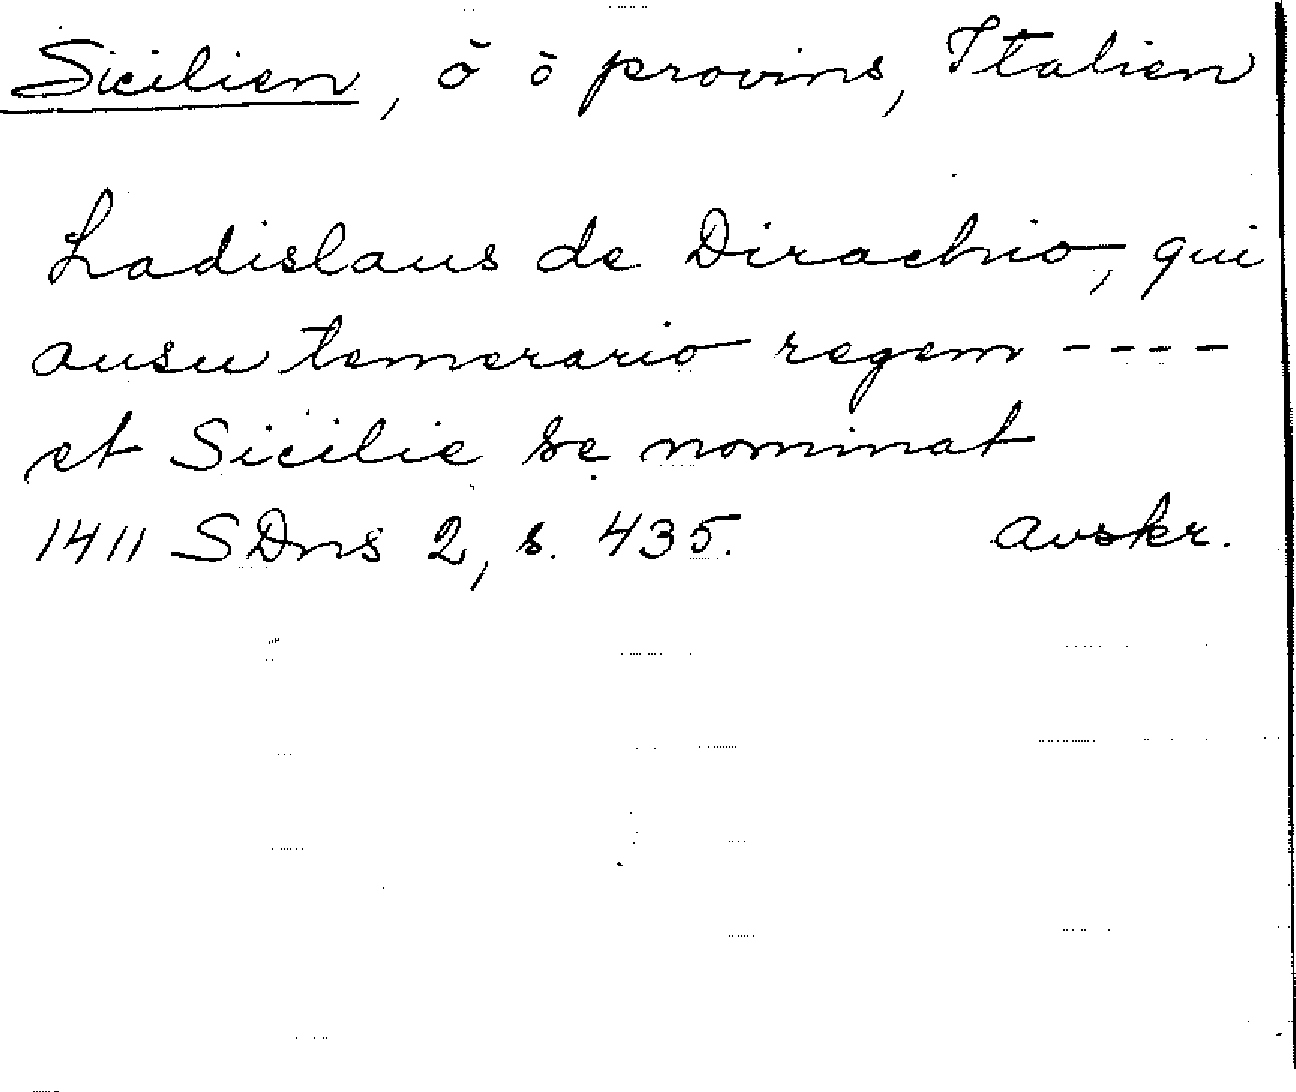 Sicilien, ö o provins, Italien
Ladislaus de Dirachio, qui
ausu temerario regem ----
et Sicilie se nominat
1411 SDns 2, s. 435. avskr.